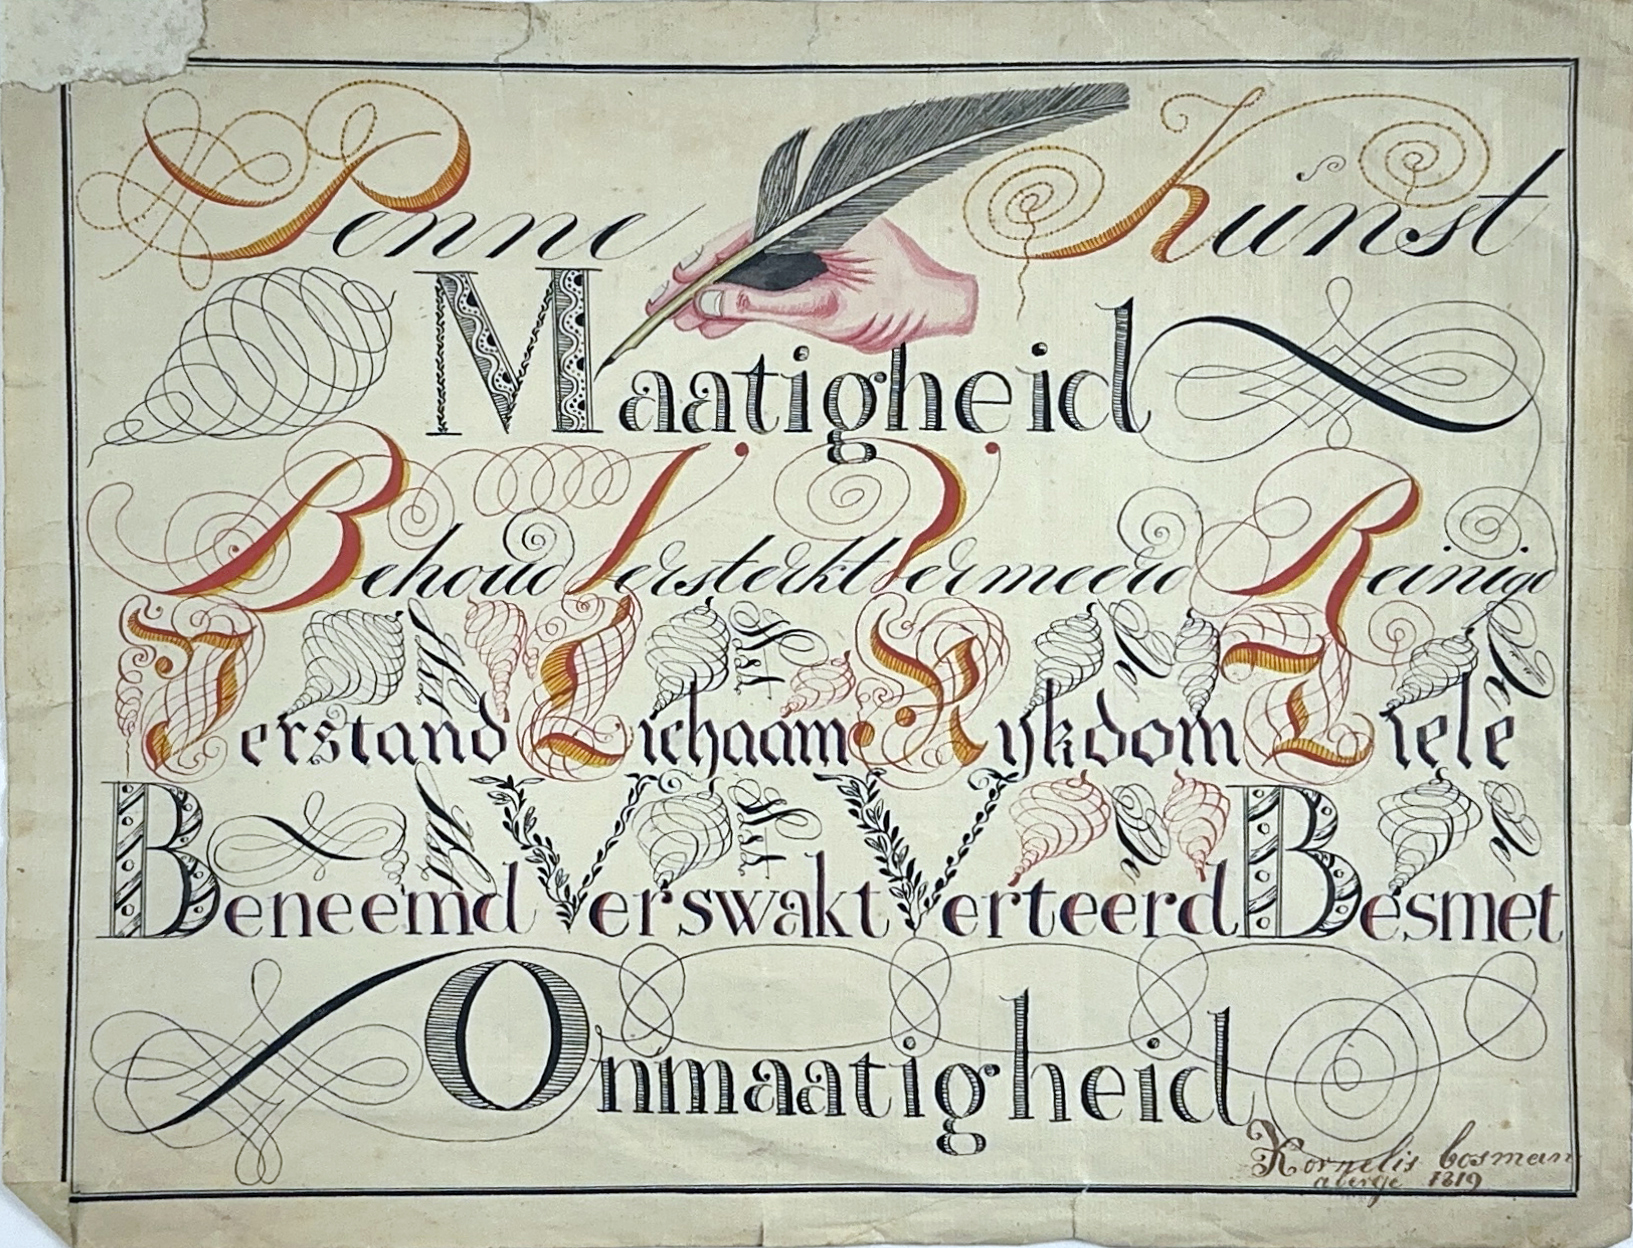 Penne Kunst
Maatigheid
Behoud Versterkt Vermeerd Reinigd
Het Het De De
Verstand Lichaam Rykdom Ziele
Het Het De De
Beneemd Verswakt Verteerd Besmet
Onmaatigheid
Kornelis bosman
1819